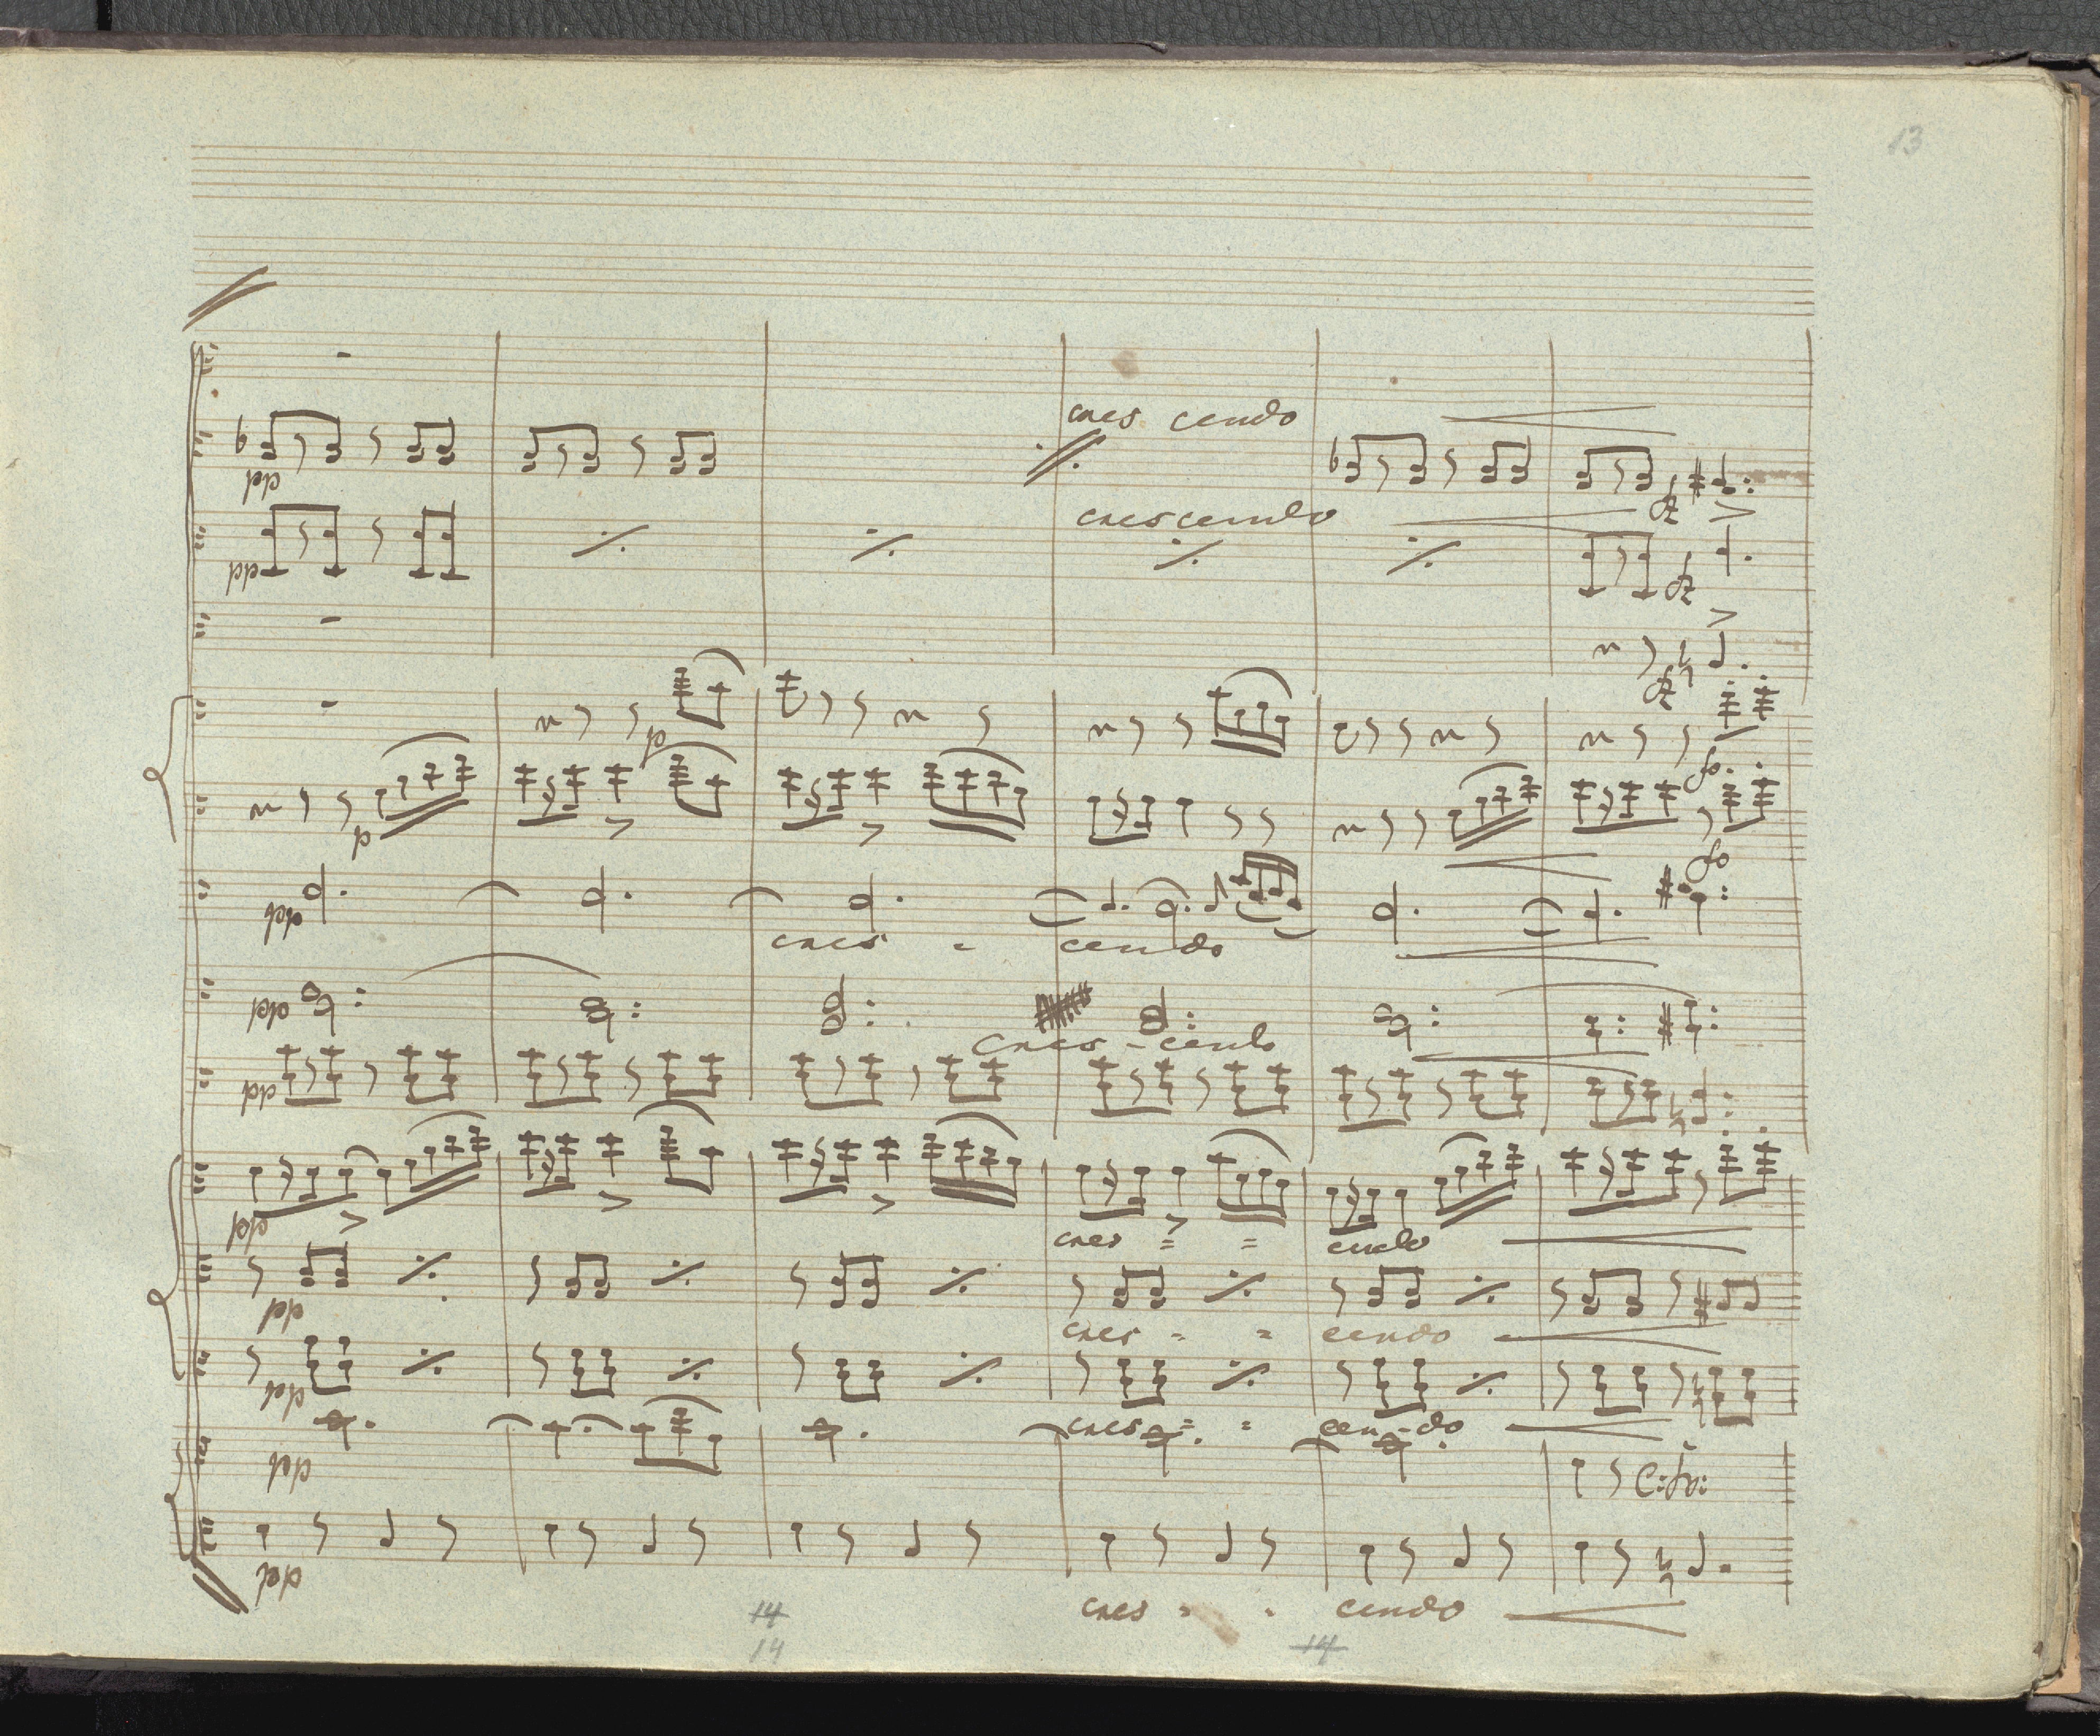 13
cres cendo
pp
crescendo
fz
pp
fz
fz
p
fo
p
fo
pp
cres - cendo
pp
Cres - cendo
pp
pp
cres = = cendo
pp
cres - = cendo
pp
cres = = cen-do
pp
C: fo:
pp
cres - - cendo
14
14
14